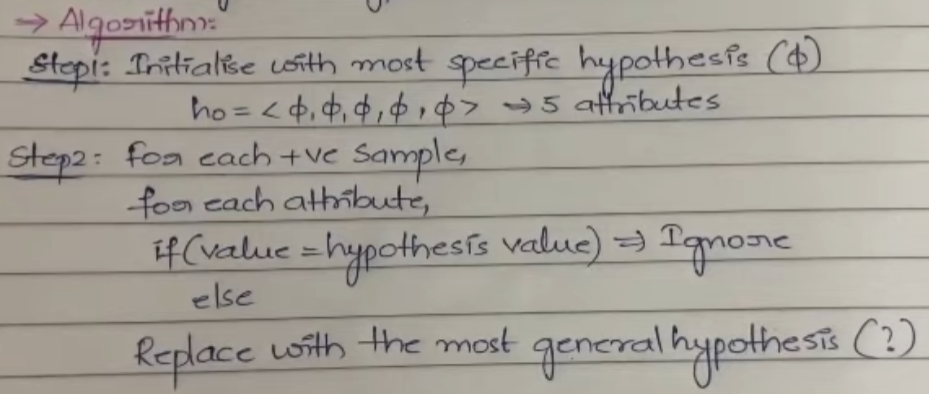 → Algorithm:
Step1: Initialise with most specific hypothesis (ϕ)
h0 = < ϕ, ϕ, ϕ, ϕ, ϕ > → 5 attributes
Step2: for each +ve sample,
for each attribute,
if (value = hypothesis value) ⇒ Ignore
else
Replace with the most general hypothesis (?)